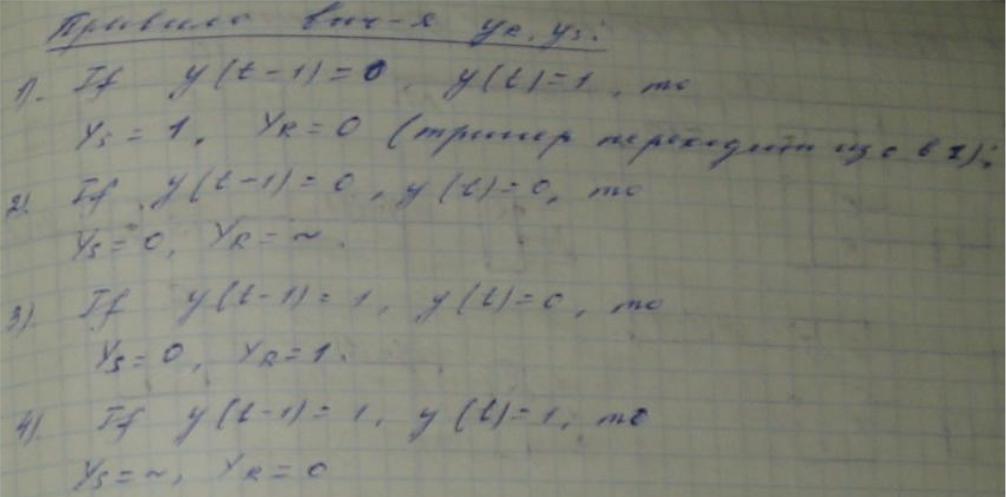 Правило выч-я yR, yS:
1). If y(t-1)=0, y(t)=1, то
YS=1, YR=0 (тригер переходит из 0 в 1);
2). If y(t-1)=0, y(t)=0, то
YS=0, YR=~.
3). If y(t-1)=1, y(t)=0, то
YS=0, YR=1.
4). If y(t-1)=1, y(t)=1, то
YS=~, YR=0